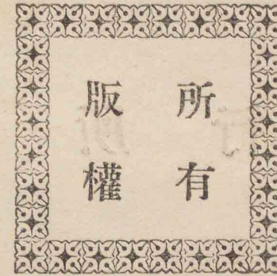 所有
版權